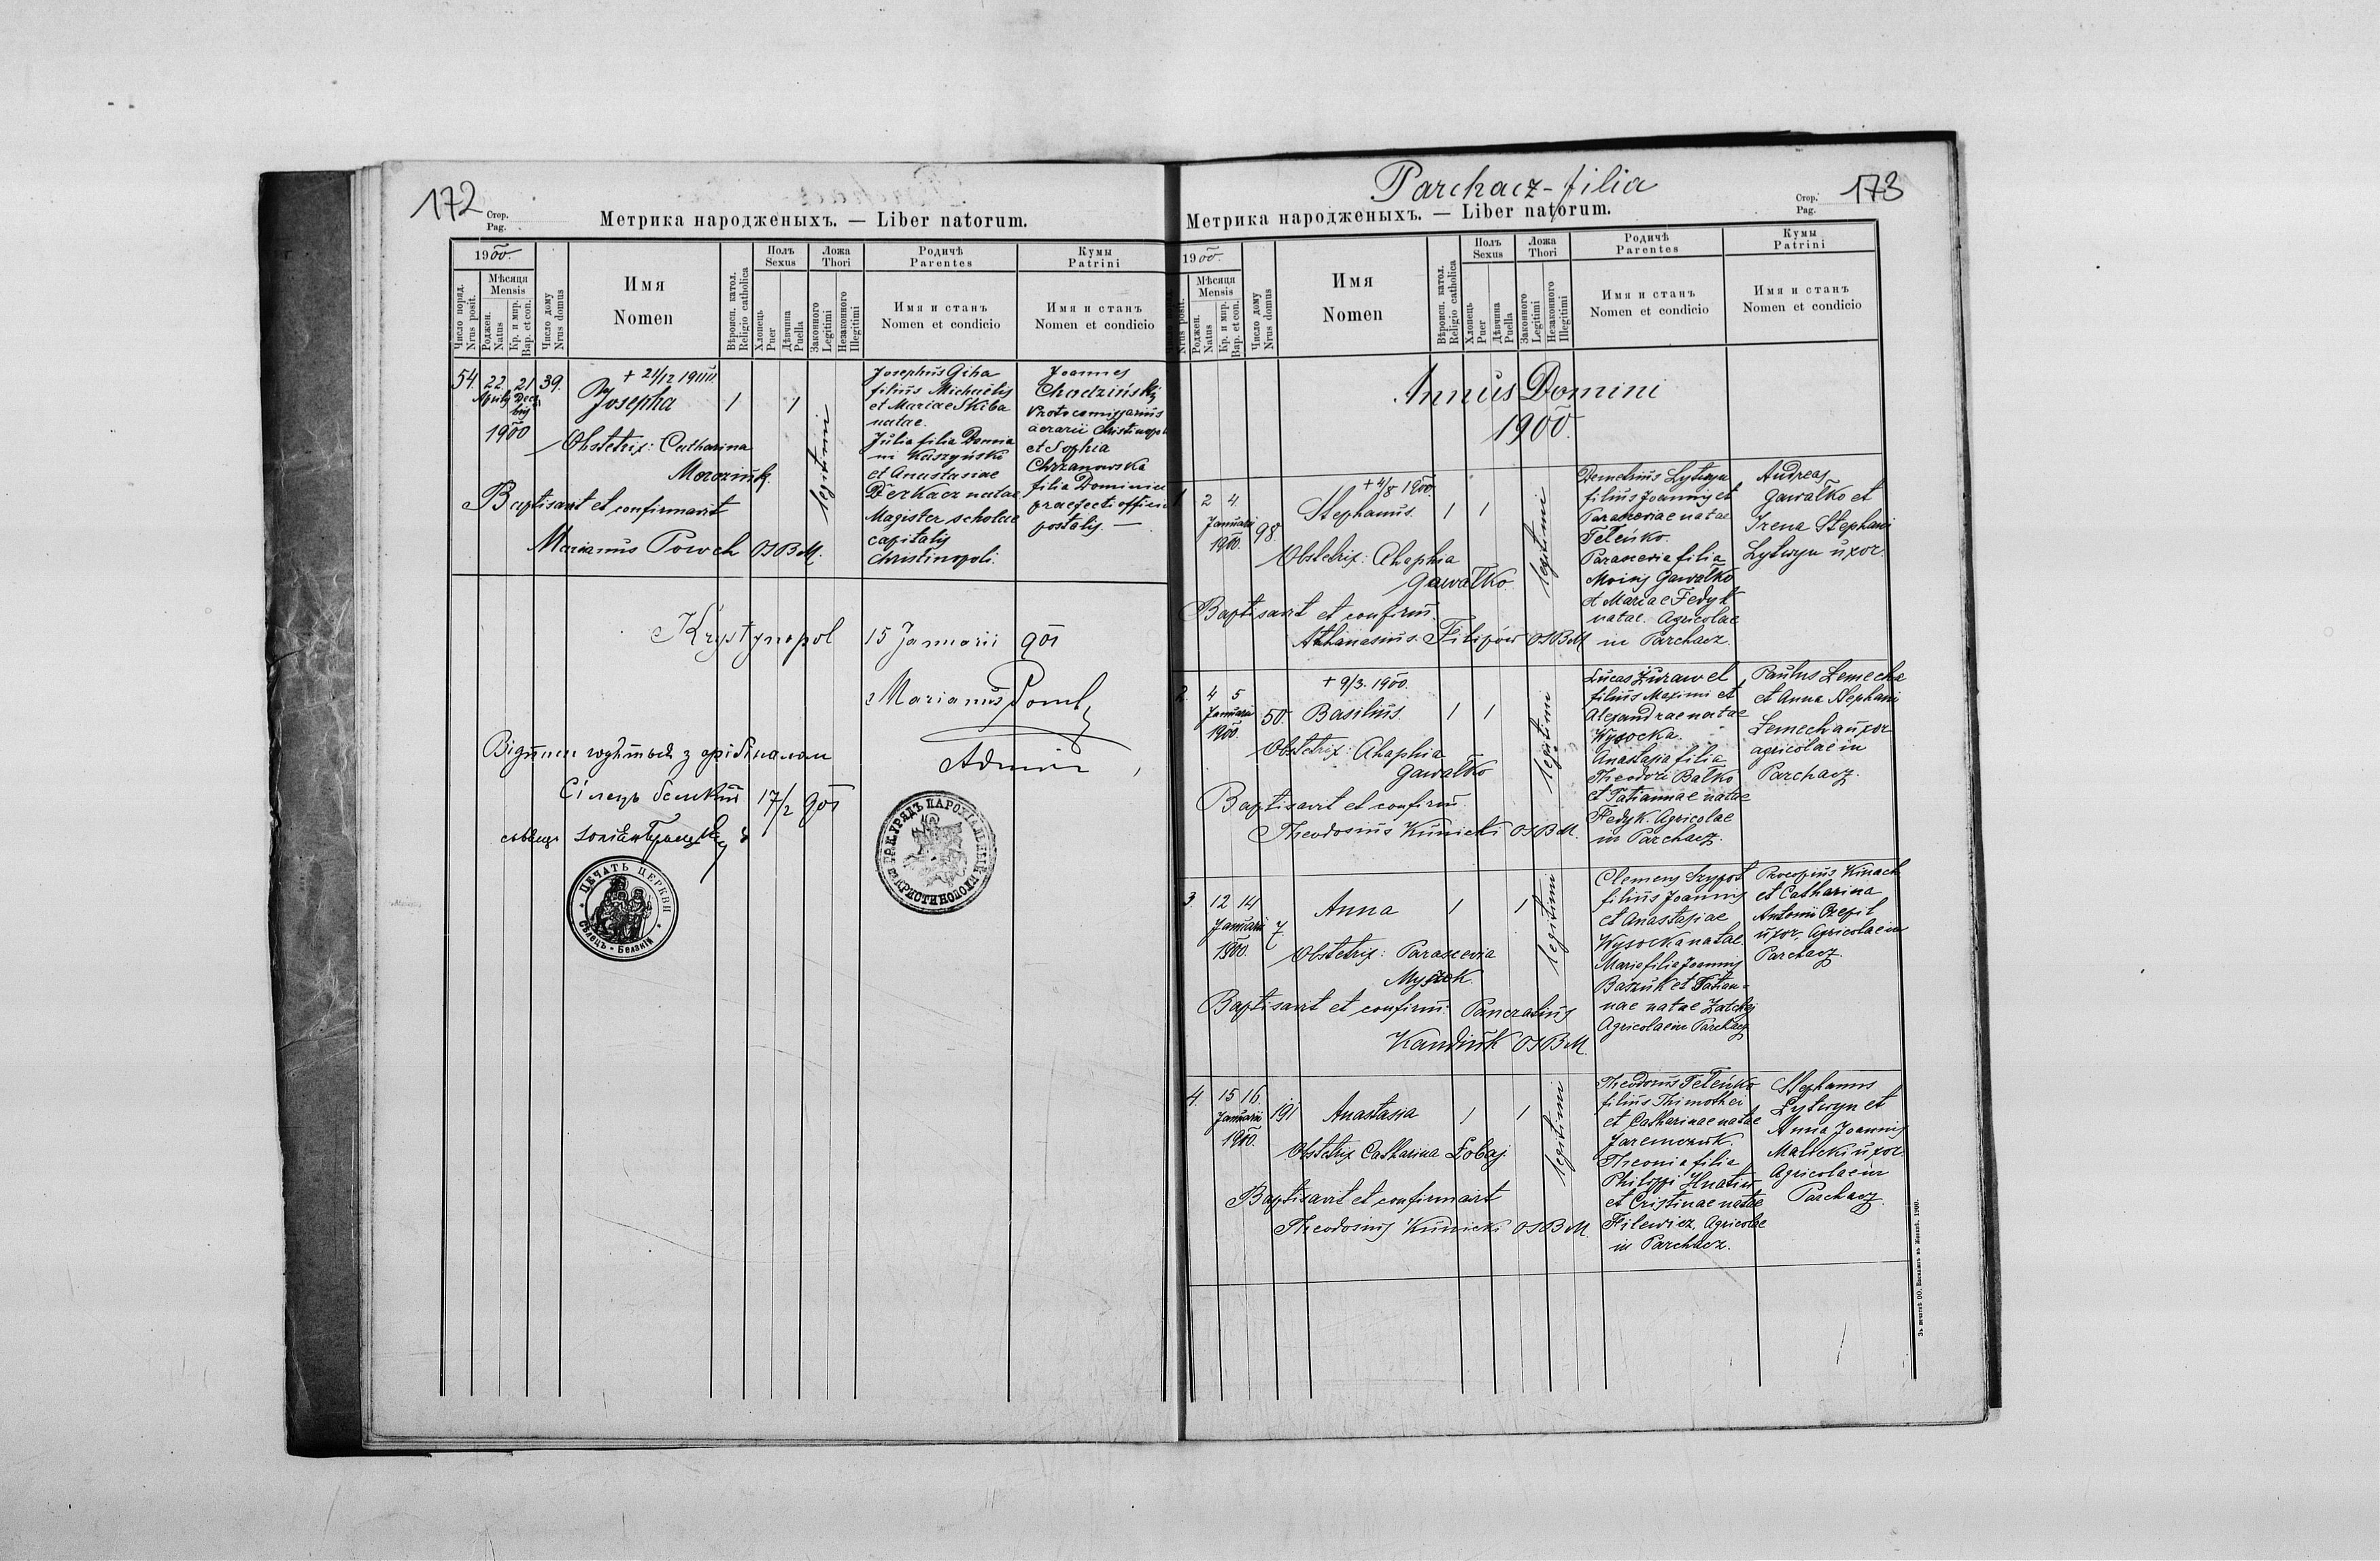 172
Стор.
Pag.
Метрика народженыхъ. — Liber natorum.
1900.
Число поряд.
Nrus posit.
Мѣсяця
Mensis
Роджен.
Natus
Кр. и мир.
Bap. et con.
Число дому
Nrus domus
Имя
Nomen
Вѣроисп. катол.
Religio catholica
Полъ
Sexus
Хлопець
Puer
Дѣвчина
Puella
Ложа
Thori
Законного
Legitimi
Незаконного
Illegitimi
Родичѣ
Parentes
Имя и станъ
Nomen et condicio
Кумы
Patrini
Имя и станъ
Nomen et condicio
54. 22 21 39.
Aprilis Decembris
1900
+ 21/12 1900
Josepha 1 1
legitimi
Obstetrix: Catharina
Baptisavit et confirmavit
Marianus Powch OSBM.
Josephus Giha
filius Michaëlis
et Mariae Skiba
natae.
Julia filia Damia
ni Kuszyński
et Anastasiae
Derkacz natae
Magister scholae
capitalis
Christinopoli.
Joannes
Chodziński
aerarii Christinopoli
et Sophia
Chrzanowska
filia Dominici
praefecti officii
postalis. —
Krystynopol 15 Januarii 901
Marianus Powch
Admin
17/2 901
ПЕЧАТЬ ЦЕРКВИ
Сѣлець - Белзкій
УРЯДЪ ПАРОХІАЛЬНЫЙ
Parchacz-filia
Стор.
Pag.
173
Метрика народженыхъ. — Liber natorum.
1900.
Nrus posit.
Мѣсяця
Mensis
Роджен.
Natus
Кр. и мир.
Bap. et con.
Число дому
Nrus domus
Имя
Nomen
Вѣроисп. катол.
Religio catholica
Полъ
Sexus
Хлопець
Puer
Дѣвчина
Puella
Ложа
Thori
Законного
Legitimi
Незаконного
Illegitimi
Родичѣ
Parentes
Имя и станъ
Nomen et condicio
Кумы
Patrini
Имя и станъ
Nomen et condicio
Annus Domini
1900.
1 2 4
Januarii
1900. 98.
+ 4/8 1900.
Stephanus. 1 1
legitimi
Obstetrix: Ahaphia
Gawałko.
Baptisavit et confirm.
Athanasius Filipów OSBM
Demetrius Lytwyn
filius Joannis et
Parasceviae natae
Teleńko.
Parascevia filia
Moisis Gawałko
et Mariae Fedyk
natae. Agricolae
in Parchacz.
Andreas
Gawałko et
Irena Stephani
Lytwyn uxor.
2. 4 5
Januarii
1900. 50.
+ 9/3. 1900.
Basilius. 1 1
legitimi
Obstetrix: Ahaphia
Gawałko
Baptisavit et confirm.
Theodosius Kunicki OSBM.
Lucas Żuraw et
filius Maximi et
Alexandrae natae
Wysocka.
Anastasia filia
Theodori Bałko
et Tatiannae natae
Fedyk. Agricolae
in Parchacz.
Paulus Lemecha
et Anna Stephani
Lemecha uxor
agricolae in
Parchacz.
3. 12 14
Januarii
1900. 7
Anna 1 1
legitimi
Obstetrix: Parascevia
Baptisavit et confirm: Pancratius
Kandiuk OSBM.
Clemens Szypot
filius Joannis
et Anastasiae
Wysocka natae.
Maria filia Joannis
Baszuk et Tatian-
nae natae
Agricolae in Parchacz
Procopius Kinach
et Catharina
Antonii Przepil
uxor, Agricolae in
Parchacz.
4. 15 16.
Januarii
1900. 191
Anastasia 1 1
legitimi
Obstetrix Catharina Łobaj
Baptisavit et confirmavit
Theodosius Kunicki OSBM.
Theodorus Teleńko
filius Thimothei
et Catharinae natae
Jaremczuk.
Theonia filia
Philippi Hnatiw
et Cristinae natae
Filewicz, Agricolae
in Parchacz.
Stephanus
Lytwyn et
Anna Joannis
Malicki uxor
Agricolae in
Parchacz.